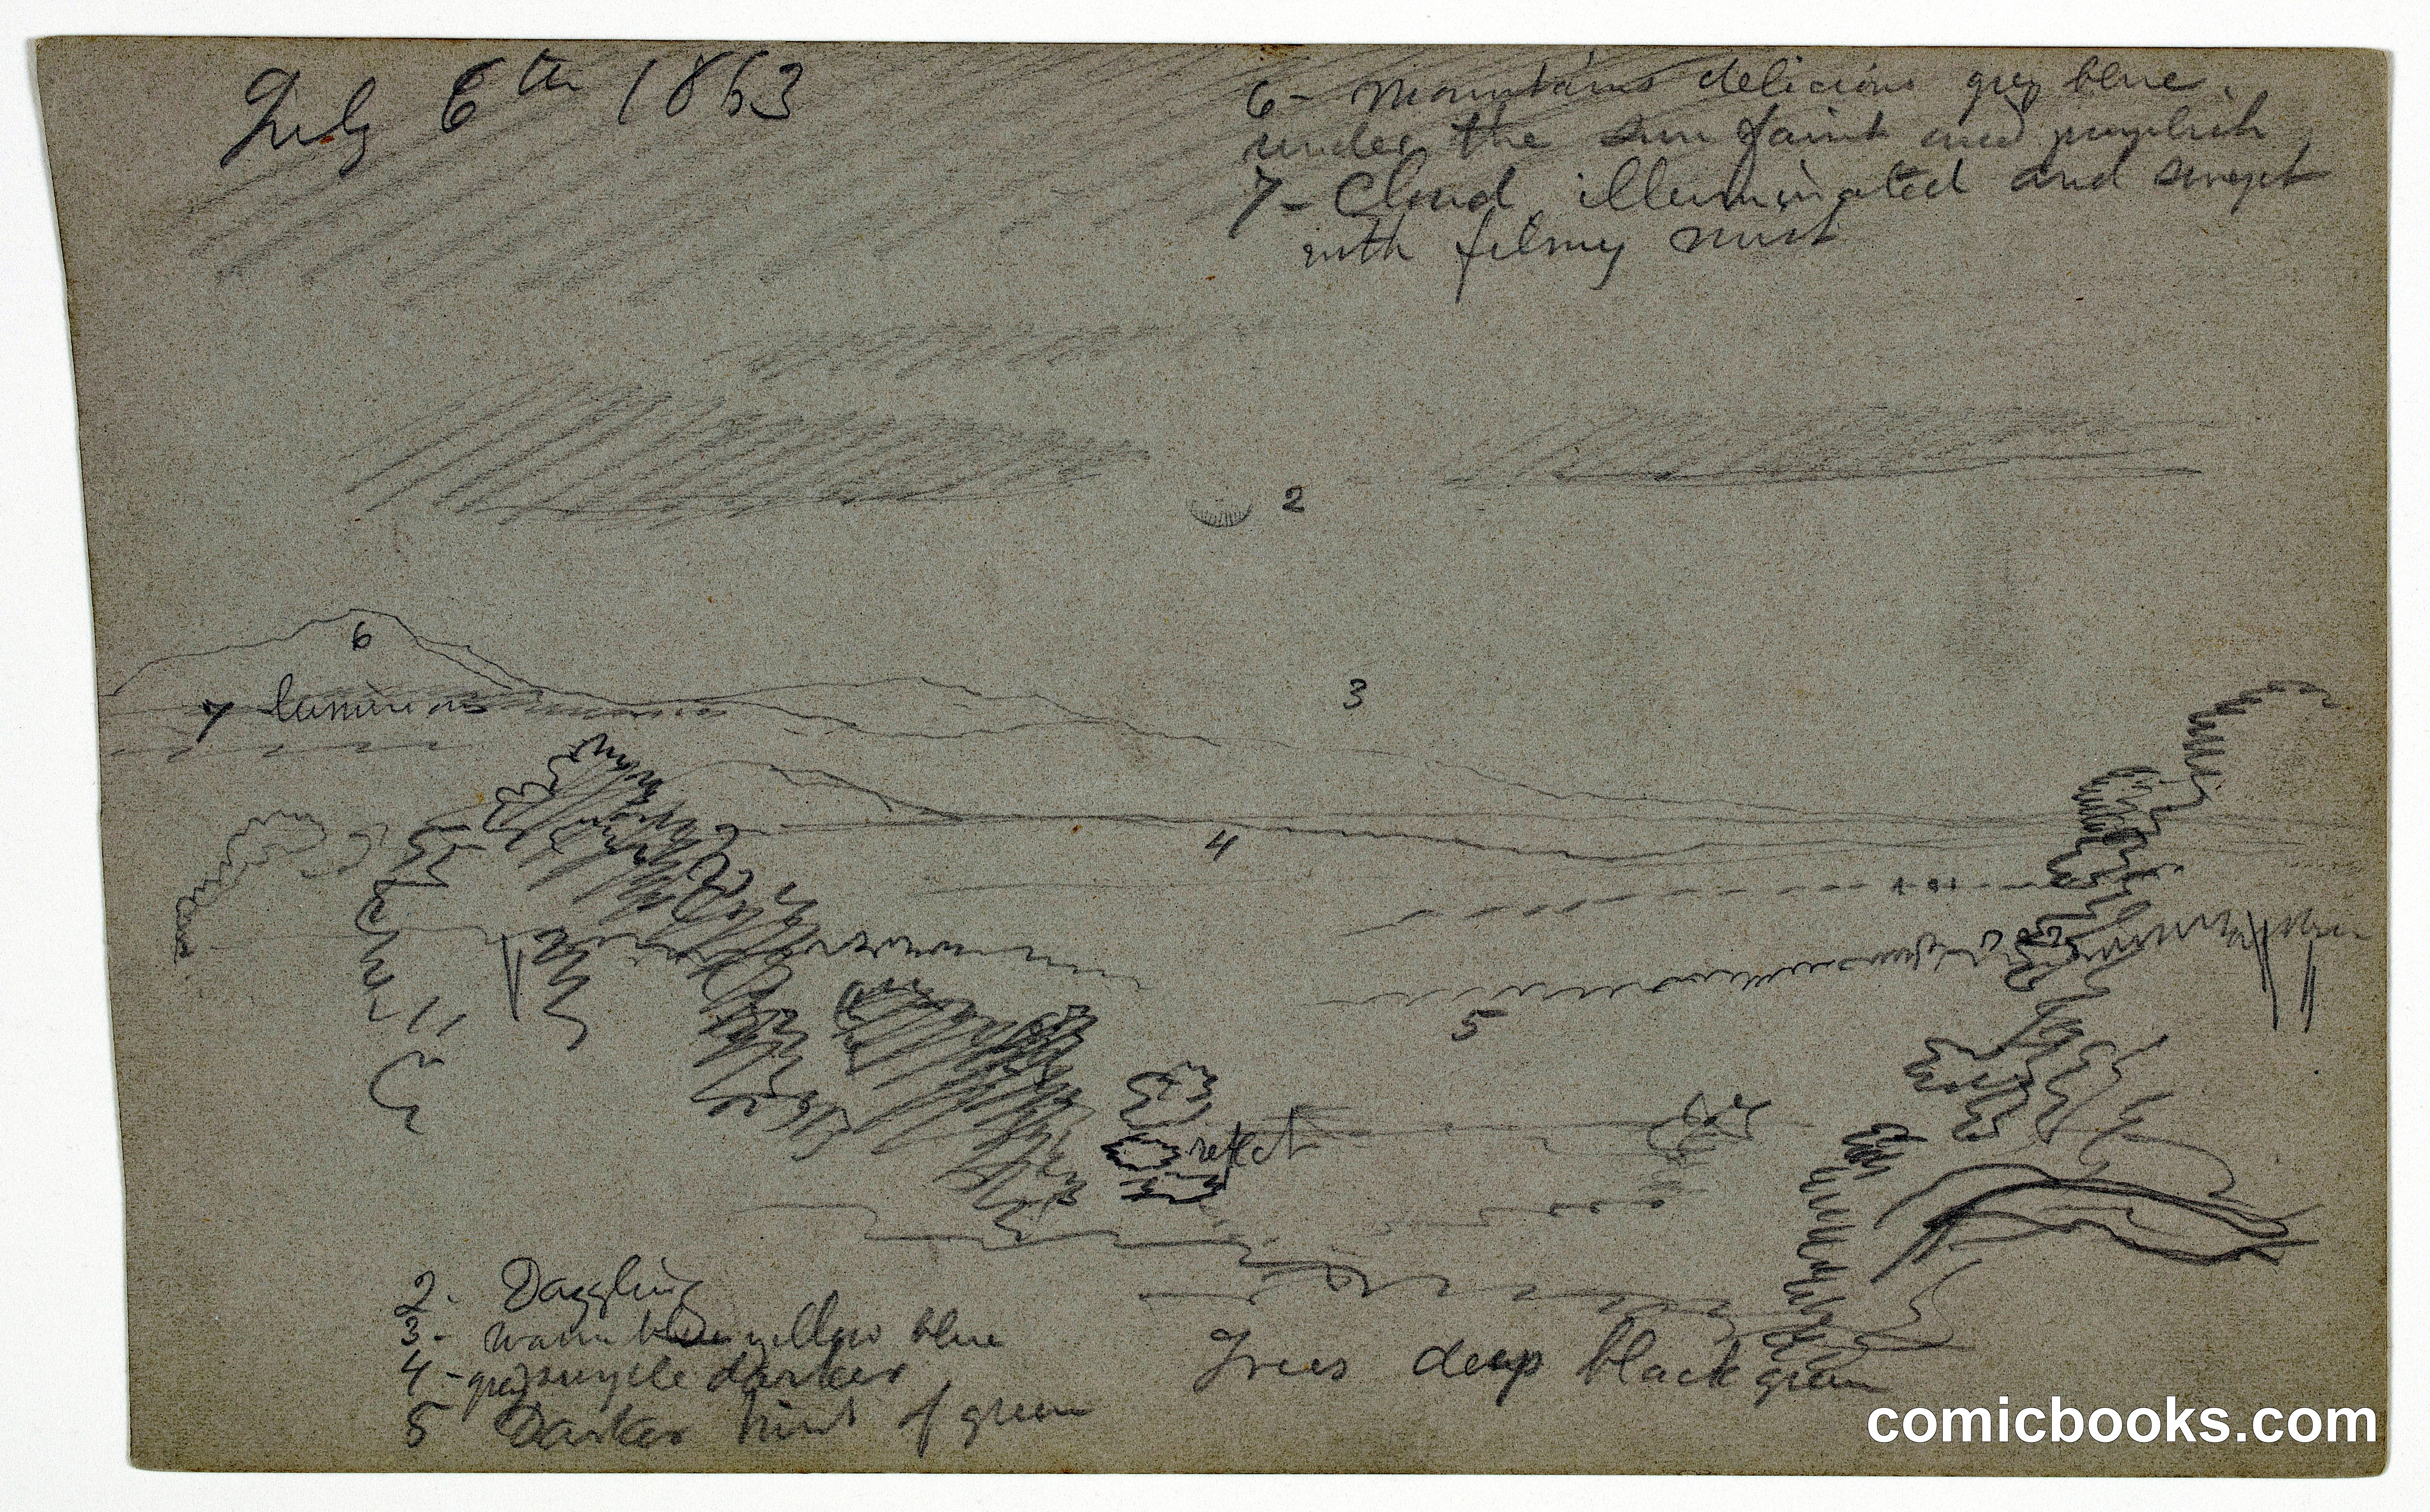 July 6th 1863
6 - Mountains delicious grey blue.
under the sun faint and purplish
7 - Cloud illuminated and swept
with filmy mist
2
6
7 luminous
3
4
5
reflect
2 - Dazzling
3 - warm yellow blue
4 - grey purple darker
5 Darker hint of green
Trees deep black green
comicbooks.com